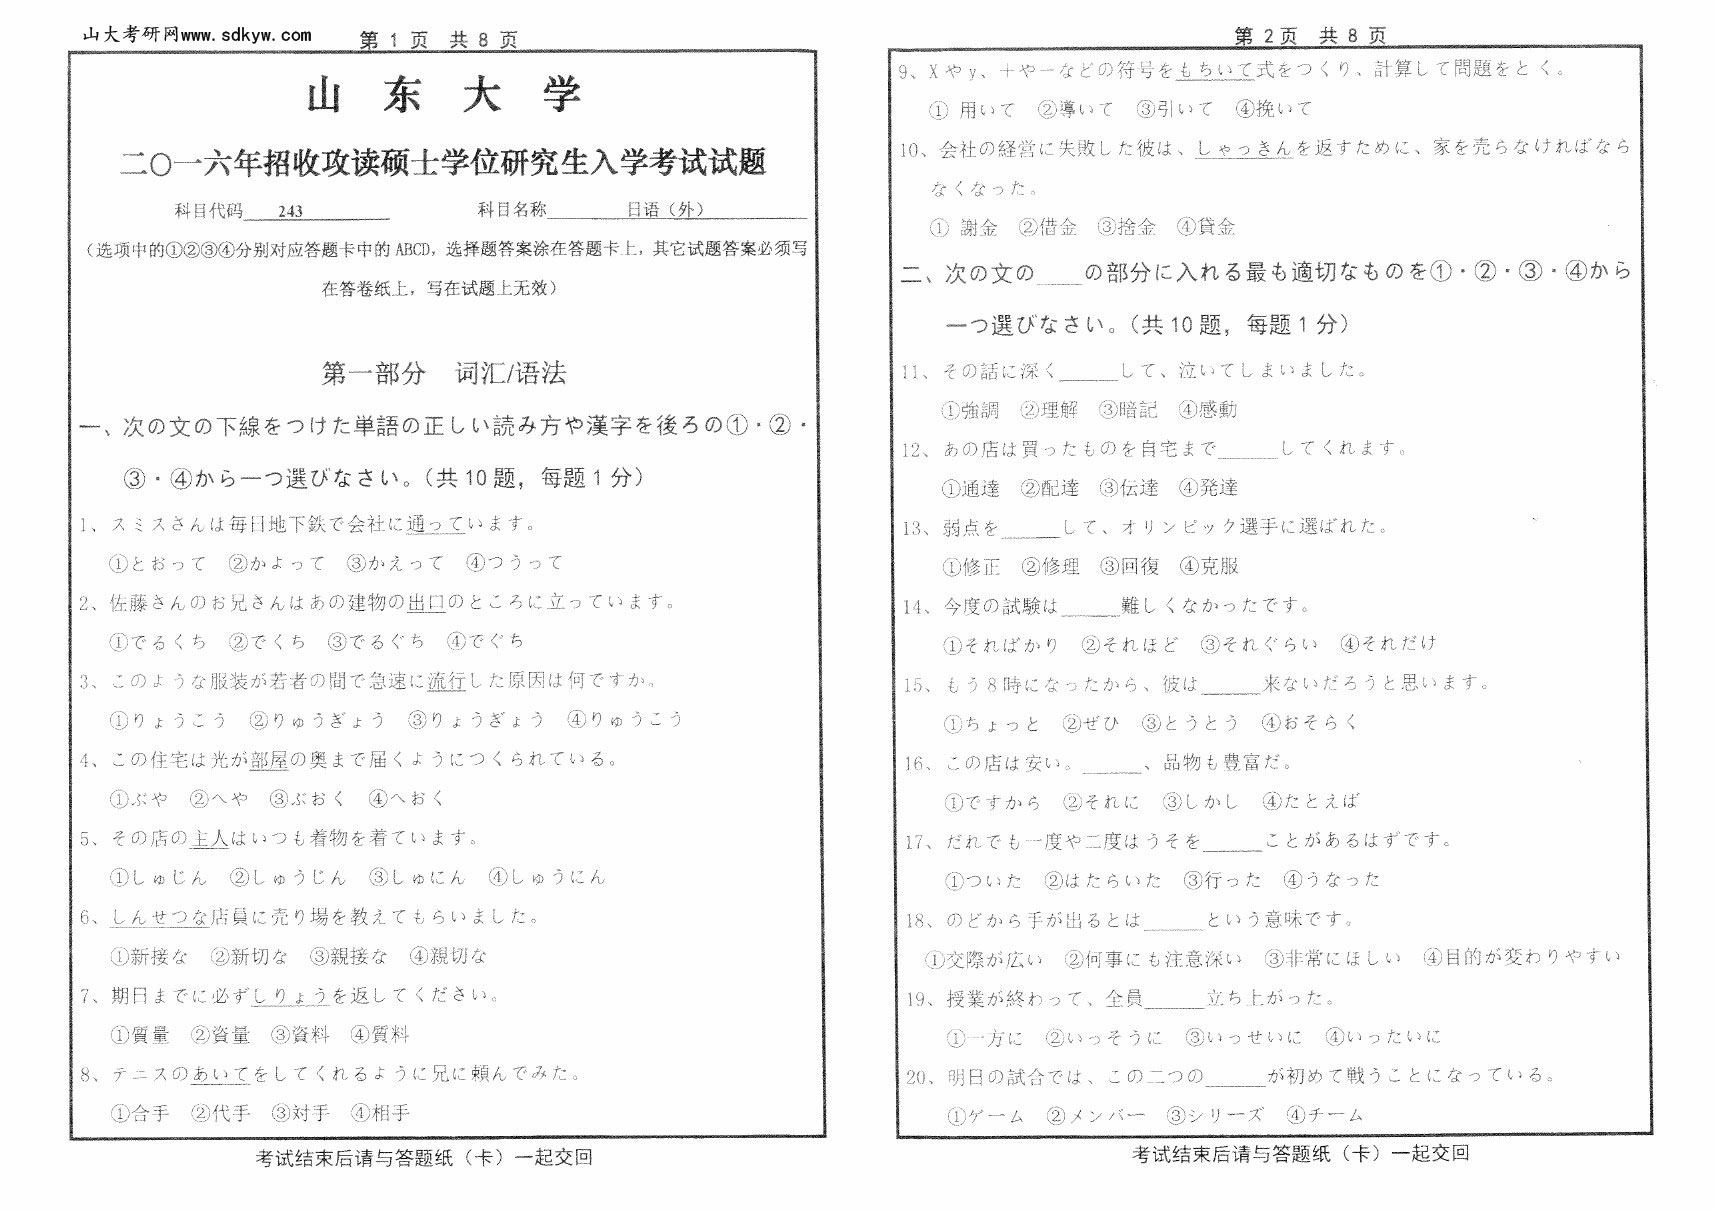 山大考研网www.sdkyw.com
第 1 页 共 8 页
山 东 大 学
二〇一六年招收攻读硕士学位研究生入学考试试题
科目代码 243 科目名称 日语（外）
（选项中的①②③④分别对应答题卡中的 ABCD，选择题答案涂在答题卡上，其它试题答案必须写
在答卷纸上，写在试题上无效）
第一部分 词汇/语法
一、次の文の下線をつけた単語の正しい読み方や漢字を後ろの①・②・
③・④から一つ選びなさい。（共 10 题，每题 1 分）
1、スミスさんは毎日地下鉄で会社に通っています。
①とおって ②かよって ③かえって ④つうって
2、佐藤さんのお兄さんはあの建物の出口のところに立っています。
①でるくち ②でくち ③でるぐち ④でぐち
3、このような服装が若者の間で急速に流行した原因は何ですか。
①りょうこう ②りゅうぎょう ③りょうぎょう ④りゅうこう
4、この住宅は光が部屋の奥まで届くようにつくられている。
①ぶや ②へや ③ぶおく ④へおく
5、その店の主人はいつも着物を着ています。
①しゅじん ②しゅうじん ③しゅにん ④しゅうにん
6、しんせつな店員に売り場を教えてもらいました。
①新接な ②新切な ③親接な ④親切な
7、期日までに必ずしりょうを返してください。
①質量 ②資量 ③資料 ④質料
8、テニスのあいてをしてくれるように兄に頼んでみた。
①合手 ②代手 ③対手 ④相手
考试结束后请与答题纸（卡）一起交回
第 2 页 共 8 页
9、X や y、＋や－などの符号をもちいて式をつくり、計算して問題をとく。
① 用いて ②導いて ③引いて ④挽いて
10、会社の経営に失敗した彼は、しゃっきんを返すために、家を売らなければなら
なくなった。
① 謝金 ②借金 ③捨金 ④貸金
二、次の文の____の部分に入れる最も適切なものを①・②・③・④から
一つ選びなさい。（共 10 题，每题 1 分）
11、その話に深く______して、泣いてしまいました。
①強調 ②理解 ③暗記 ④感動
12、あの店は買ったものを自宅まで______してくれます。
①通達 ②配達 ③伝達 ④発達
13、弱点を______して、オリンピック選手に選ばれた。
①修正 ②修理 ③回復 ④克服
14、今度の試験は______難しくなかったです。
①そればかり ②それほど ③それぐらい ④それだけ
15、もう 8 時になったから、彼は______来ないだろうと思います。
①ちょっと ②ぜひ ③とうとう ④おそらく
16、この店は安い。______、品物も豊富だ。
①ですから ②それに ③しかし ④たとえば
17、だれでも一度や二度はうそを______ことがあるはずです。
①ついた ②はたらいた ③行った ④うなった
18、のどから手が出るとは______という意味です。
①交際が広い ②何事にも注意深い ③非常にほしい ④目的が変わりやすい
19、授業が終わって、全員______立ち上がった。
①一方に ②いっそうに ③いっせいに ④いったいに
20、明日の試合では、この二つの______が初めて戦うことになっている。
①ゲーム ②メンバー ③シリーズ ④チーム
考试结束后请与答题纸（卡）一起交回